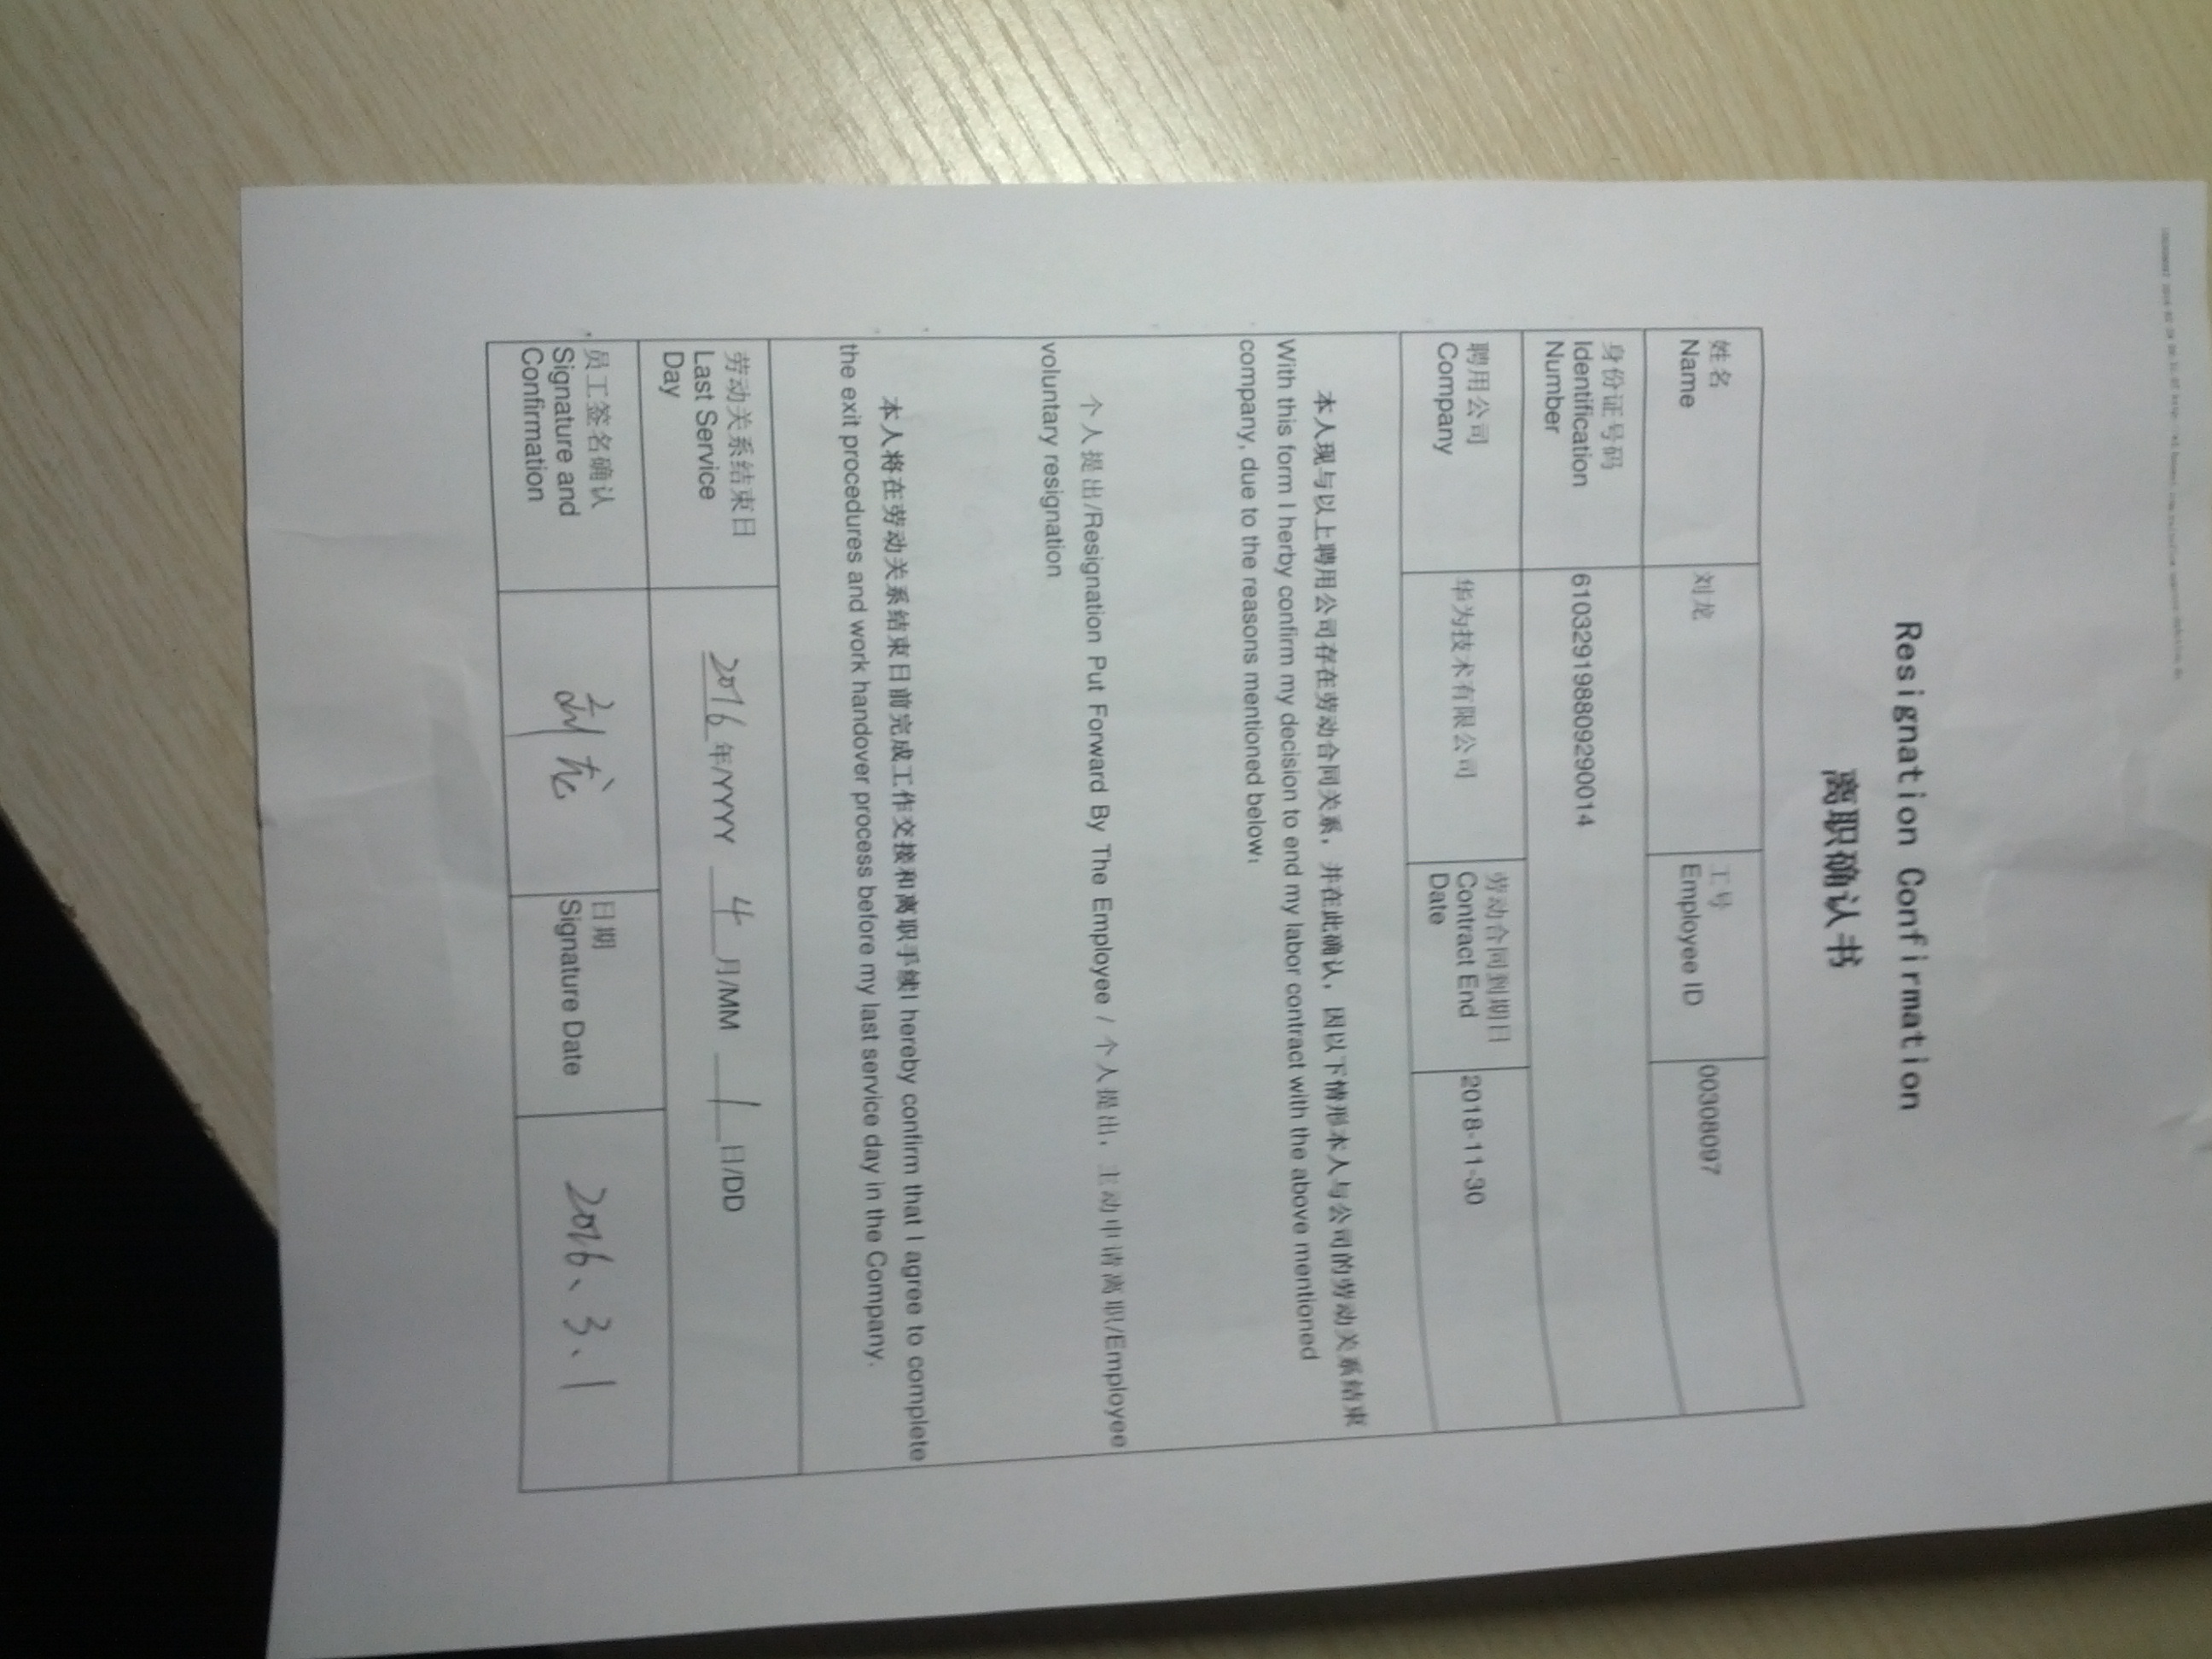 Resignation Confirmation
离职确认书
姓名
Name
刘龙
工号
Employee ID
00308097
身份证号码
Identification
Number
610329198809290014
聘用公司
Company
华为技术有限公司
劳动合同到期日
Contract End
Date
2018-11-30
本人现与以上聘用公司存在劳动合同关系，并在此确认，因以下情形本人与公司的劳动关系结束
With this form I herby confirm my decision to end my labor contract with the above mentioned
company, due to the reasons mentioned below:
个人提出/Resignation Put Forward By The Employee / 个人提出，主动申请离职/Employee
voluntary resignation
本人将在劳动关系结束日前完成工作交接和离职手续I hereby confirm that I agree to complete
the exit procedures and work handover process before my last service day in the Company.
劳动关系结束日
Last Service
Day
2016 年/YYYY 4 月/MM 1 日/DD
员工签名确认
Signature and
Confirmation
刘龙
日期
Signature Date
2016、3、1